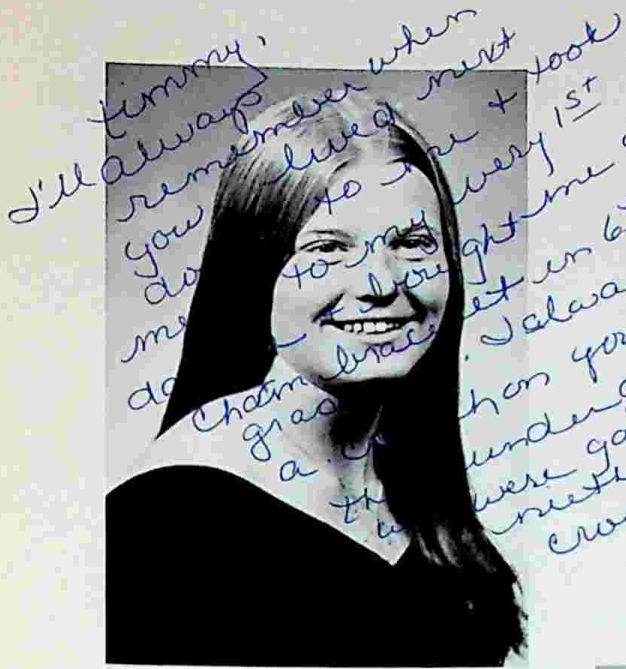 timmy,
I'll always
remember when
you lived next
do to me & took
me to my very 1st
da & bought me
charm bracelet in 6
grad . I alwa
a c h on you
th under
were ga